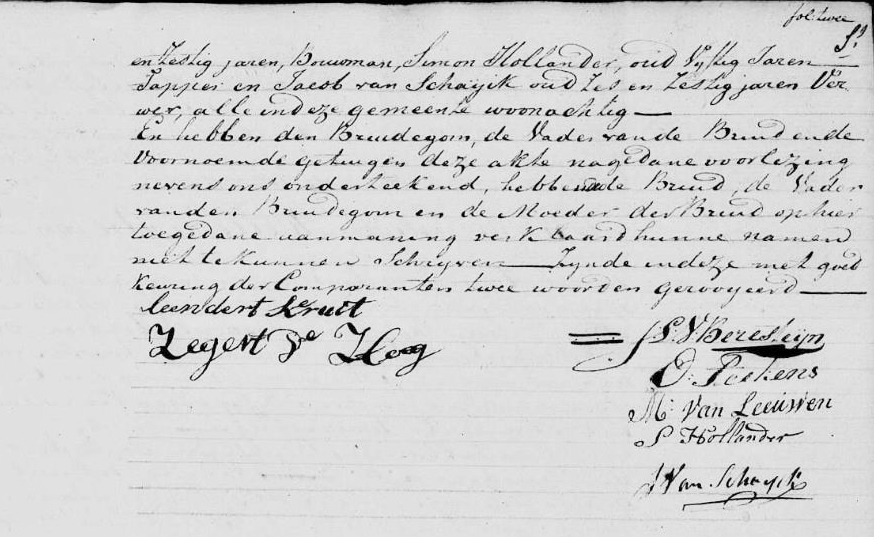 fol: twee
en Zestig jaren, Bouwman, Simon Hollander, oud Vyftig Jaren
Tapper en Jacob van Schayik oud Zes en Zestig jaren Ver
wer, alle in deze gemeente woonachtig —
En hebben den Bruidegom, de Vader van de Bruid en de
Voornoemde getuigen deze akte na gedane voorlezing
nevens ons onderteekend, hebbende de Bruid, de Vader
van den Bruidegom en de Moeder der Bruid op hier
toe gedane aanmaning verklaard hunne namen
niet te kunnen Schryven — Zynde in deze met goed
keuring der Comparanten twee woorden geroyeerd —
leendert Kruit
Zegert de Hoog
V Beresteijn
M. Van Leeuwen
S Hollander
J Van Schayk